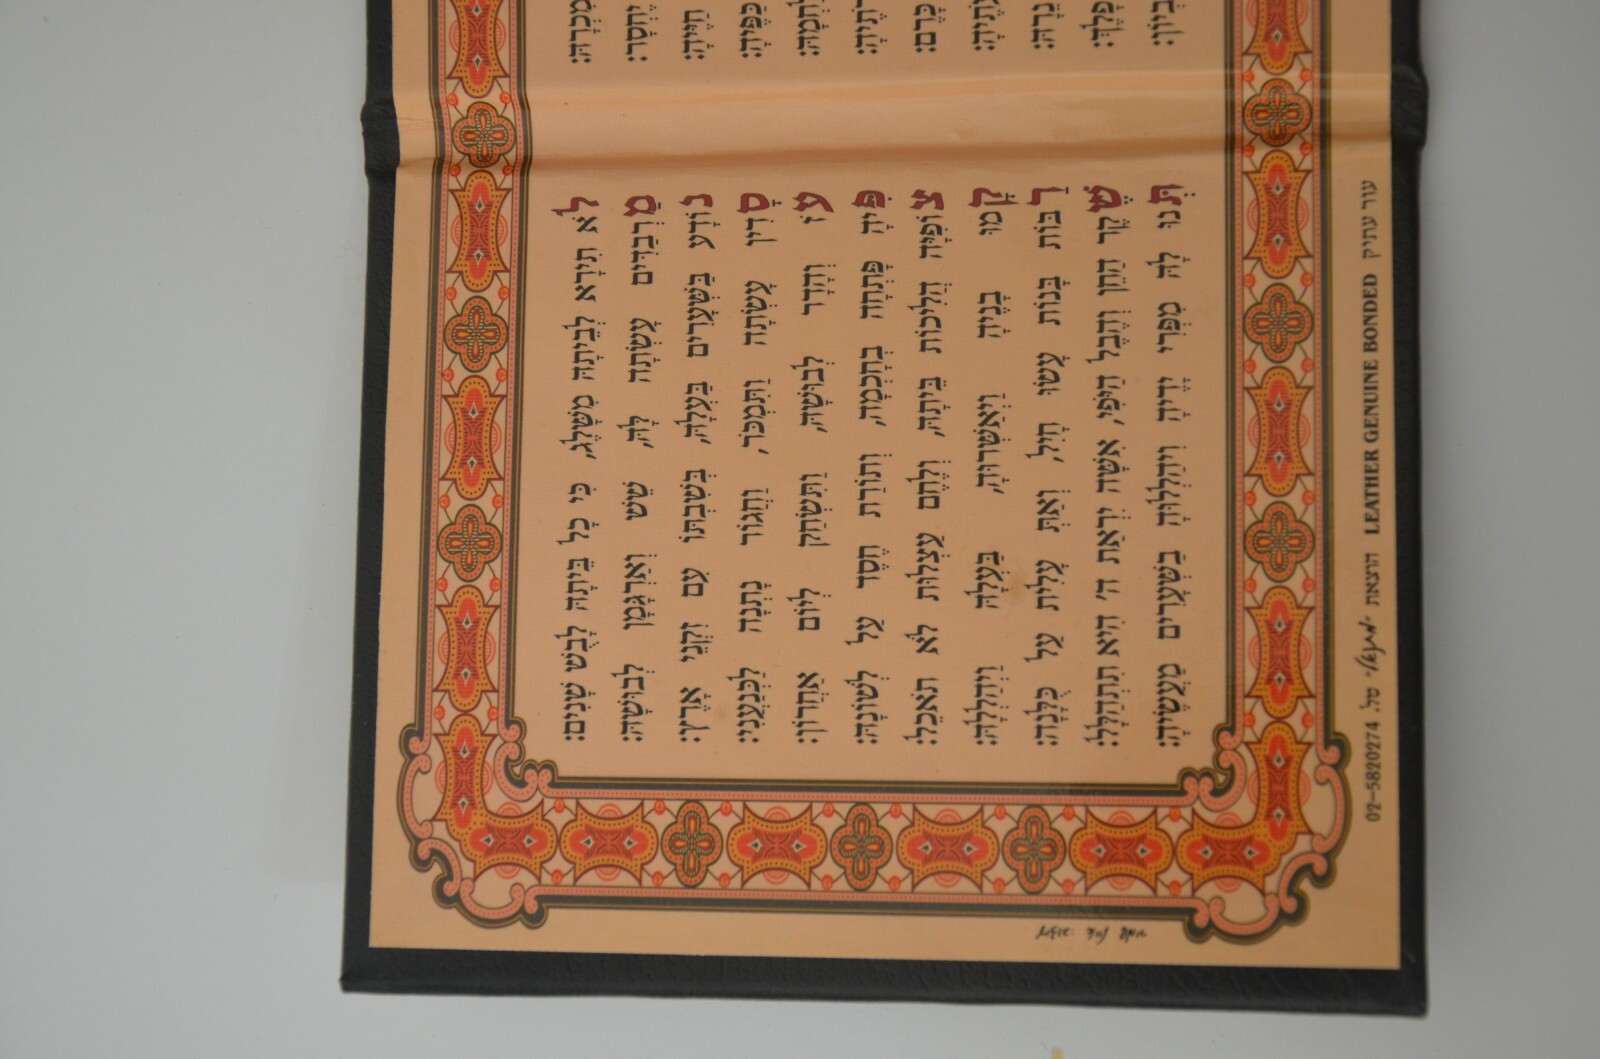 יֶחְסָר:
חַיֶּיהָ:
כַּפֶּיהָ:
כָּרֶם:
נֵרָהּ:
פָלֶךְ:
לֹא תִירָא לְבֵיתָהּ מִשָּׁלֶג, כִּי כָל בֵּיתָהּ לָבֻשׁ שָׁנִים:
מַרְבַדִּים עָשְׂתָה לָּהּ, שֵׁשׁ וְאַרְגָּמָן לְבוּשָׁהּ:
נוֹדָע בַּשְּׁעָרִים בַּעְלָהּ, בְּשִׁבְתּוֹ עִם זִקְנֵי אָרֶץ:
סָדִין עָשְׂתָה וַתִּמְכֹּר, וַחֲגוֹר נָתְנָה לַכְּנַעֲנִי:
עֹז וְהָדָר לְבוּשָׁהּ, וַתִּשְׂחַק לְיוֹם אַחֲרוֹן:
פִּיהָ פָּתְחָה בְחָכְמָה, וְתוֹרַת חֶסֶד עַל לְשׁוֹנָהּ:
צוֹפִיָּה הֲלִיכוֹת בֵּיתָהּ, וְלֶחֶם עַצְלוּת לֹא תֹאכֵל:
קָמוּ בָנֶיהָ וַיְאַשְּׁרוּהָ, בַּעְלָהּ וַיְהַלְלָהּ:
רַבּוֹת בָּנוֹת עָשׂוּ חָיִל, וְאַתְּ עָלִית עַל כֻּלָּנָה:
שֶׁקֶר הַחֵן וְהֶבֶל הַיֹּפִי, אִשָּׁה יִרְאַת ה' הִיא תִתְהַלָּל:
תְּנוּ לָהּ מִפְּרִי יָדֶיהָ וִיהַלְלוּהָ בַשְּׁעָרִים מַעֲשֶׂיהָ:
עור עתיק LEATHER GENUINE BONDED הוצאת טל. 02-5820274